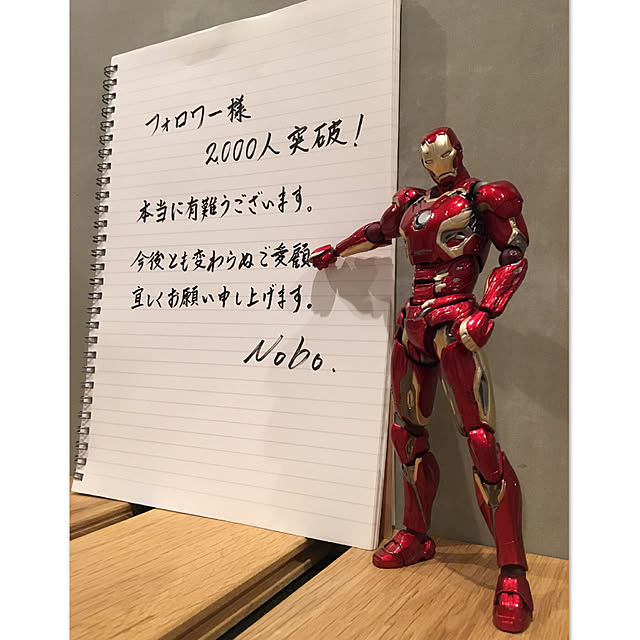 フォロワー様
2000人突破！
本当に有難うございます。
今後とも変わらぬご愛顧
宜しくお願い申し上げます。
Nobo.